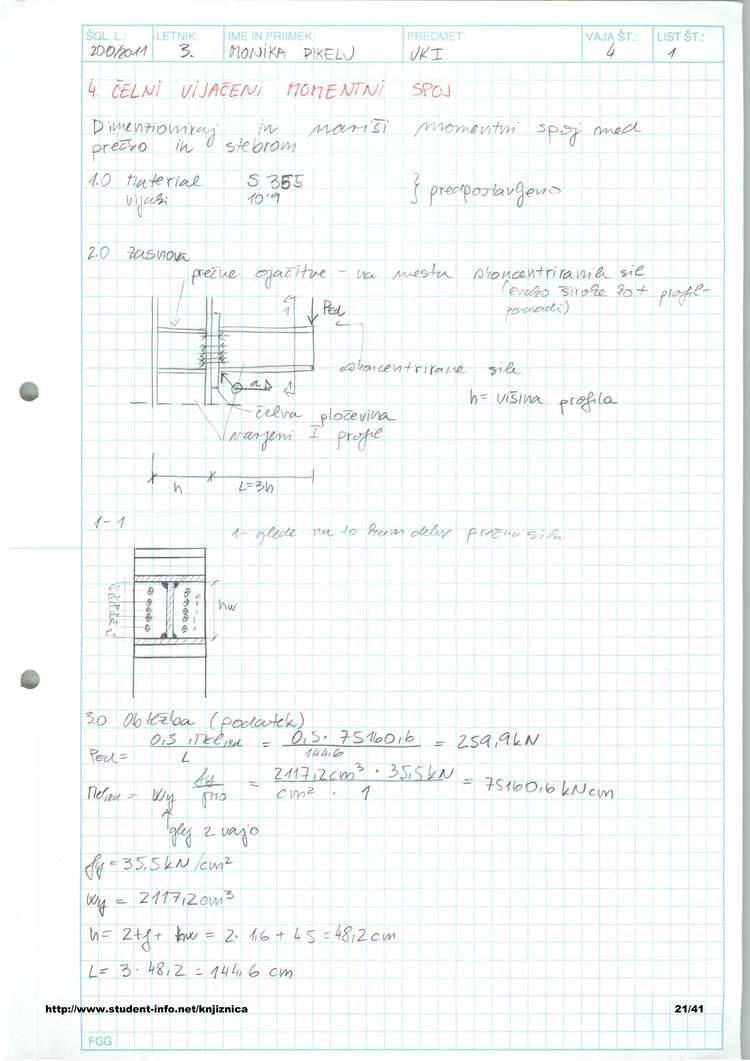 ŠOL. L.: LETNIK: IME IN PRIIMEK: PREDMET: VAJA ŠT.: LIST ŠT.:
2010/2011 3. MONIKA PIKELJ JKI 4 1
4. ČELNI VIJAČENI MOMENTNI SPOJ
Dimenzioniraj in nariši momentni spoj med
prečko in stebrom
1.0 Material S 355
vijaki 10.9 } predpostavljeno
2.0 Zasnova
prečne ojačitve - na mestu skoncentriranih sil
(enako široke so + profil-
ponadi)
1
PEd
skoncentrirane sile
a
h = višina profila
čelna pločevina
varjeni I profil
h L=3h
1-1
1- glede na to kam deluje prečna sila
hw
3.0 Obtežba (podatek)
PEd = 0,5 · Mel,Rd / L = 0,5 · 75160,6 / 144,6 = 259,9 kN
Mel,Rd = Wy fy / γM0 = 2117,2 cm³ · 35,5 kN / cm² · 1 = 75160,6 kNcm
glej 2. vajo
fy = 35,5 kN/cm²
Wy = 2117,2 cm³
h = 2tf + hw = 2 · 1,6 + 45 = 48,2 cm
L = 3 · 48,2 = 144,6 cm
http://www.student-info.net/knjiznica 21/41
FGG